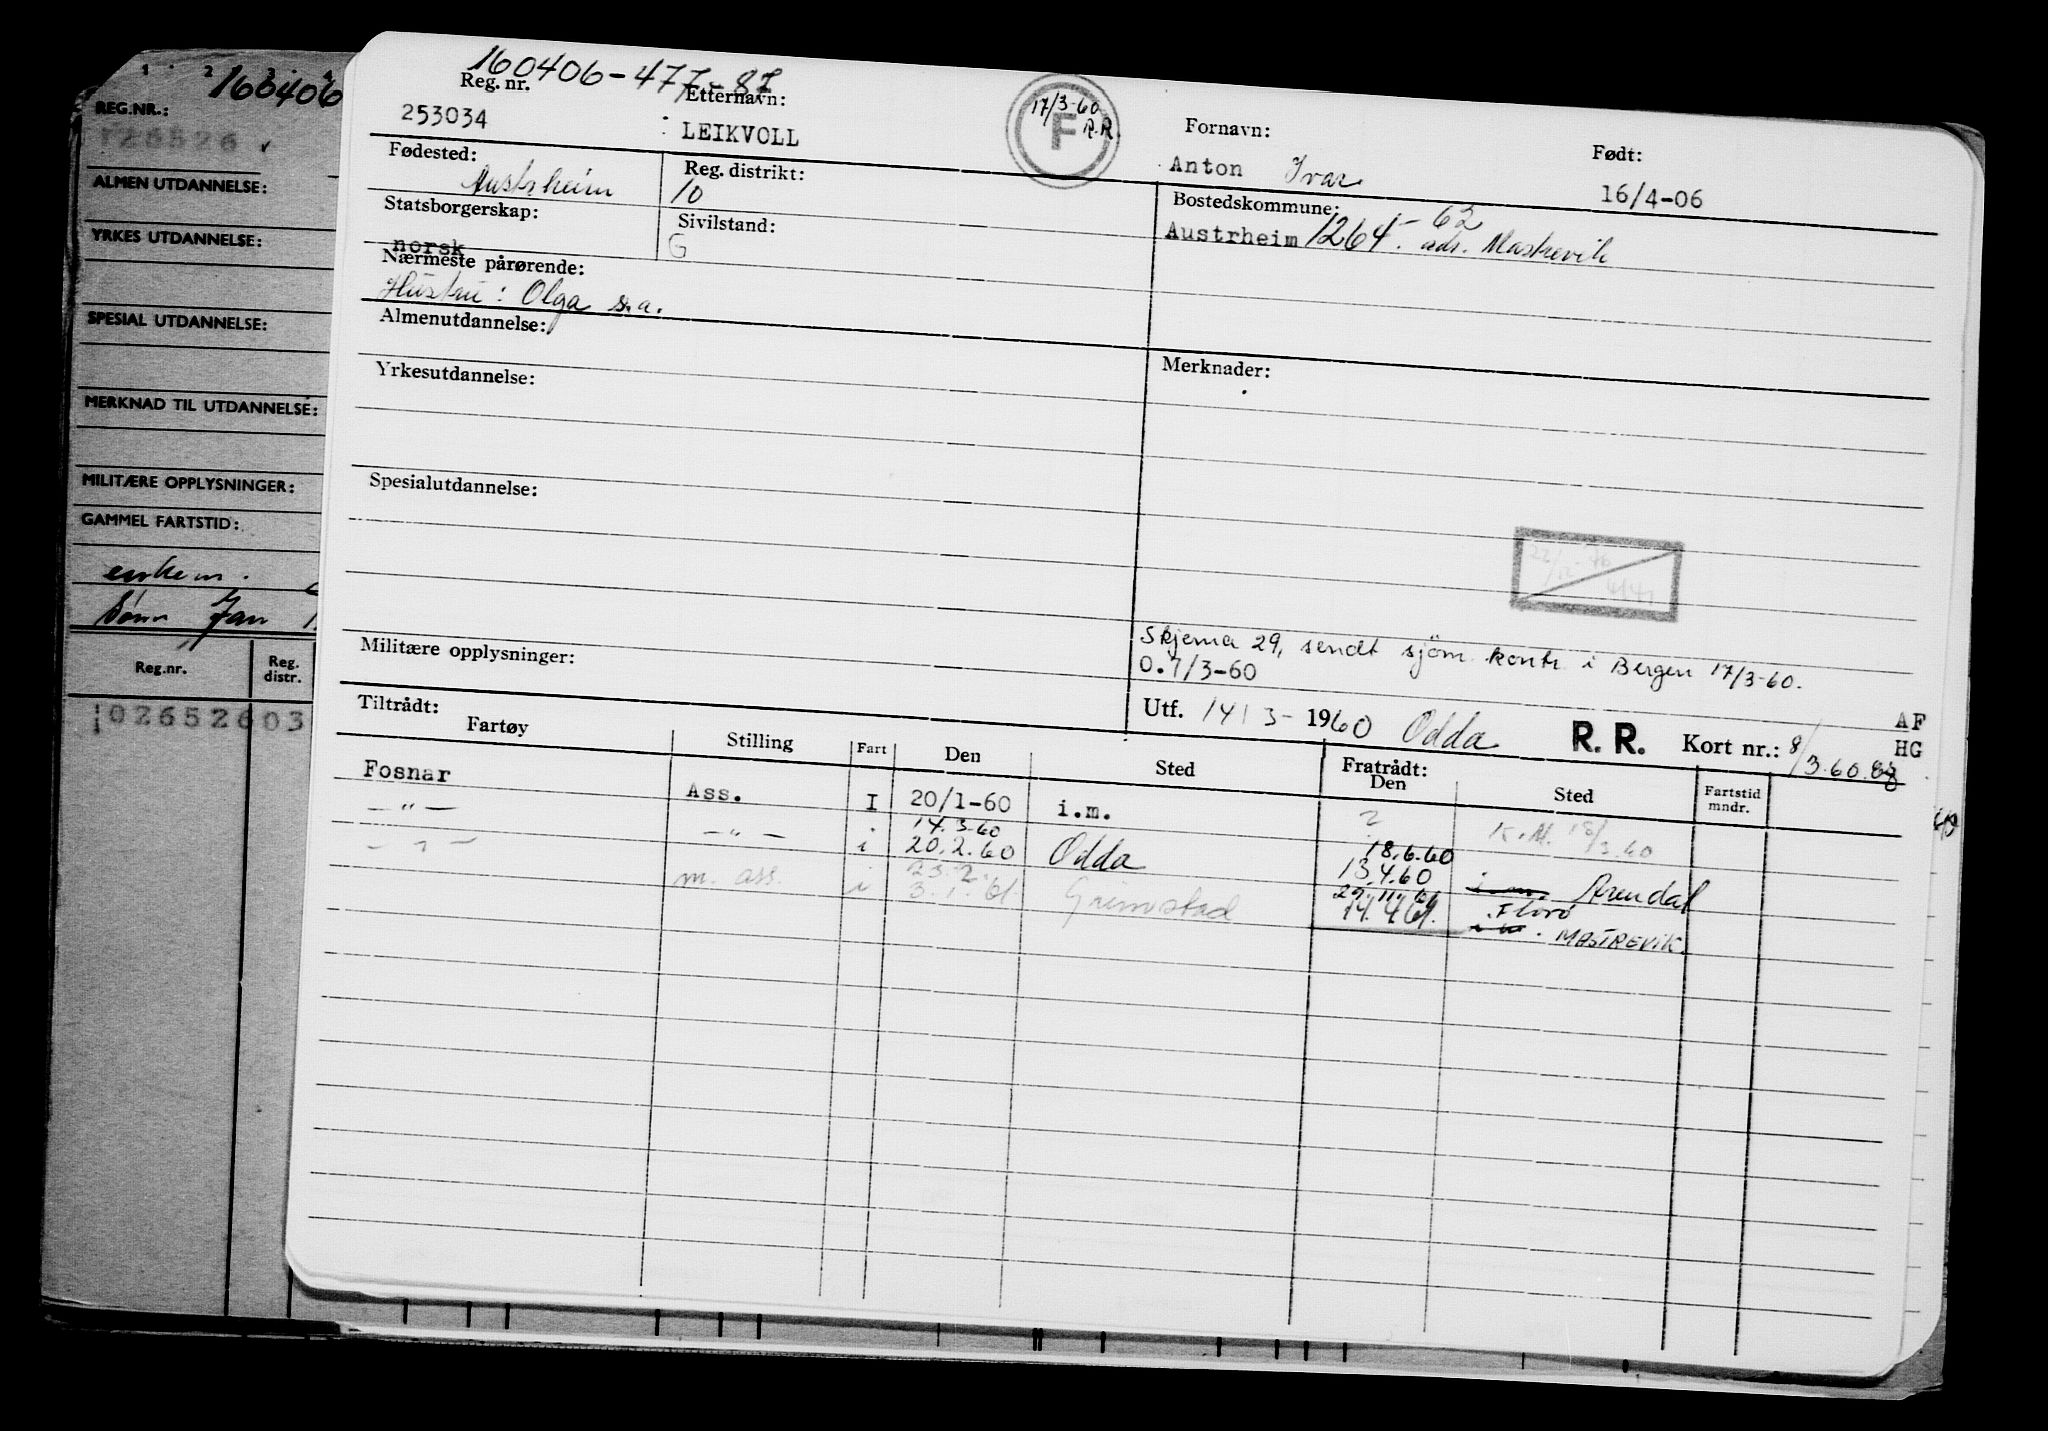 1 2 3 4
160406
REG.NR.:
126526
ALMEN UTDANNELSE:
YRKES UTDANNELSE:
SPESIAL UTDANNELSE:
MERKNAD TIL UTDANNELSE:
MILITÆRE OPPLYSNINGER:
GAMMEL FARTSTID:
enkem.
Sønn Jan
Reg.nr. Reg. distr.
102652603
160406-477-87
Reg. nr. Etternavn: Fornavn: Født:
253034 LEIKVOLL Anton Ivar 16/4-06
17/3-60
R.R.
F
Fødested: Reg. distrikt: Bostedskommune:
Austrheim 10 Austrheim 1264-62 adr. Mastrevik
Statsborgerskap: Sivilstand:
norsk G
Nærmeste pårørende:
Hustru: Olga s.a.
Almenutdannelse:
Yrkesutdannelse: Merknader:
Spesialutdannelse:
22/12-76
Skjema 29, sendt sjøm. kontr. i Bergen 17/3-60.
Militære opplysninger: O.7/3-60
Utf. 14/3-1960 Odda R. R. Kort nr.: 8/3.60. AF
HG
Tiltrådt: Fratrådt:
Fartøy Stilling Fart Den Sted Den Sted Fartstid mndr.
Fosnar Ass. I 20/1-60 i.m. 2 K.M. 18/3.60
-"- -"- 14.3.60
i 20.2.60 Odda 18.6.60
13.4.60 i.m. Arendal
-"- m. ass. i 23.2.
3.1.61. Grimstad 29.11.60 Florø
14.4.61. i.m. MASTREVIK